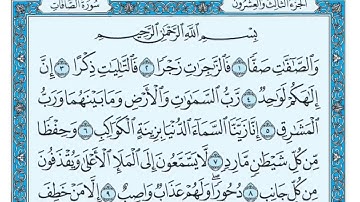 الجزء الثالث والعشرون
سورة الصافات
بِسْمِ ٱللَّهِ ٱلرَّحْمَٰنِ ٱلرَّحِيمِ
وَٱلصَّٰٓفَّٰتِ صَفًّا ١ فَٱلزَّٰجِرَٰتِ زَجْرًا ٢ فَٱلتَّٰلِيَٰتِ ذِكْرًا ٣ إِنَّ
إِلَٰهَكُمْ لَوَٰحِدٌ ٤ رَّبُّ ٱلسَّمَٰوَٰتِ وَٱلْأَرْضِ وَمَا بَيْنَهُمَا وَرَبُّ
ٱلْمَشَٰرِقِ ٥ إِنَّا زَيَّنَّا ٱلسَّمَآءَ ٱلدُّنْيَا بِزِينَةٍ ٱلْكَوَاكِبِ ٦ وَحِفْظًا
مِّن كُلِّ شَيْطَٰنٍ مَّارِدٍ ٧ لَّا يَسَّمَّعُونَ إِلَى ٱلْمَلَإِ ٱلْأَعْلَىٰ وَيُقْذَفُونَ
مِن كُلِّ جَانِبٍ ٨ دُحُورًا ۖ وَلَهُمْ عَذَابٌ وَاصِبٌ ٩ إِلَّا مَنْ خَطِفَ